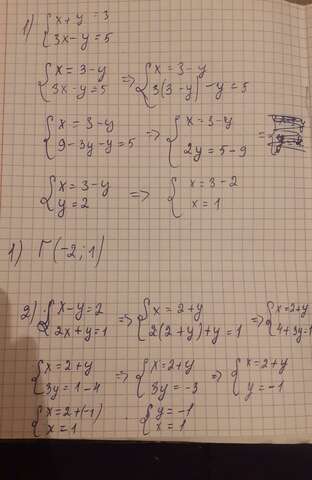 1) { x + y = 3
3x - y = 5
{ x = 3 - y
3x - y = 5 => { x = 3 - y
3(3 - y) - y = 5
{ x = 3 - y
9 - 3y - y = 5 => { x = 3 - y
2y = 5 - 9 =>
{ x = 3 - y
y = 2 => { x = 3 - 2
x = 1
1) Г(-2; 1)
2) { x - y = 2
2x + y = 1 => { x = 2 + y
2(2 + y) + y = 1 => { x = 2 + y
4 + 3y = 1
{ x = 2 + y
3y = 1 - 4 => { x = 2 + y
3y = -3 => { x = 2 + y
y = -1
{ x = 2 + (-1)
x = 1 { y = -1
x = 1